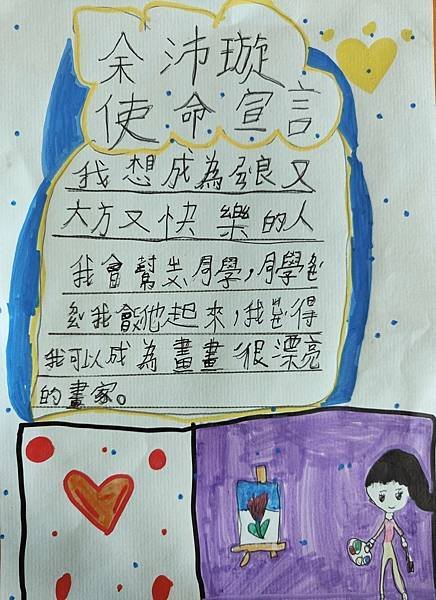 余沛璇
使命宣言
我想成為又
大方又快樂的人
我會幫同學,同學
我會他起來,我得
我可以成為畫畫很漂亮
的畫家。